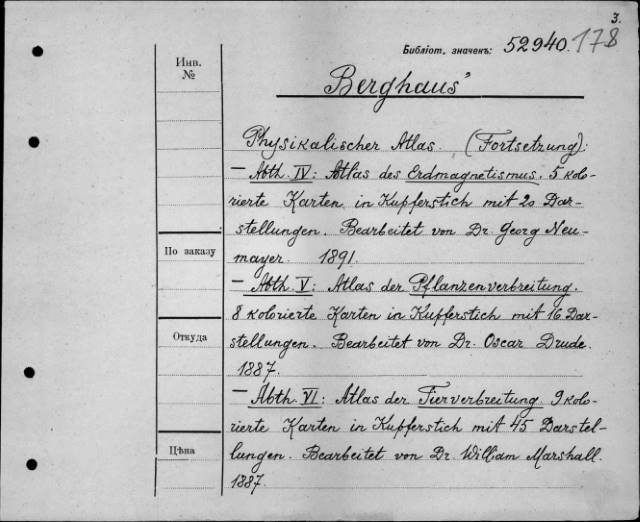 3.
Библіот. значекъ: 52940. 178
Инв.
№
Berghaus'
Physikalischer Atlas. (Fortsetzung):
— Abth. IV: Atlas des Erdmagnetismus. 5 kolo-
rierte Karten in Kupferstich mit 20 Dar-
stellungen. Bearbeitet von Dr. Georg Neu-
mayer. 1891.
По заказу
— Abth. V: Atlas der Pflanzenverbreitung.
8 kolorierte Karten in Kupferstich mit 16 Dar-
stellungen. Bearbeitet von Dr. Oscar Drude.
Откуда
1887.
— Abth. VI: Atlas der Tierverbreitung. 9 kolo-
rierte Karten in Kupferstich mit 45 Darstel-
lungen. Bearbeitet von Dr. William Marshall.
Цѣна
1887.